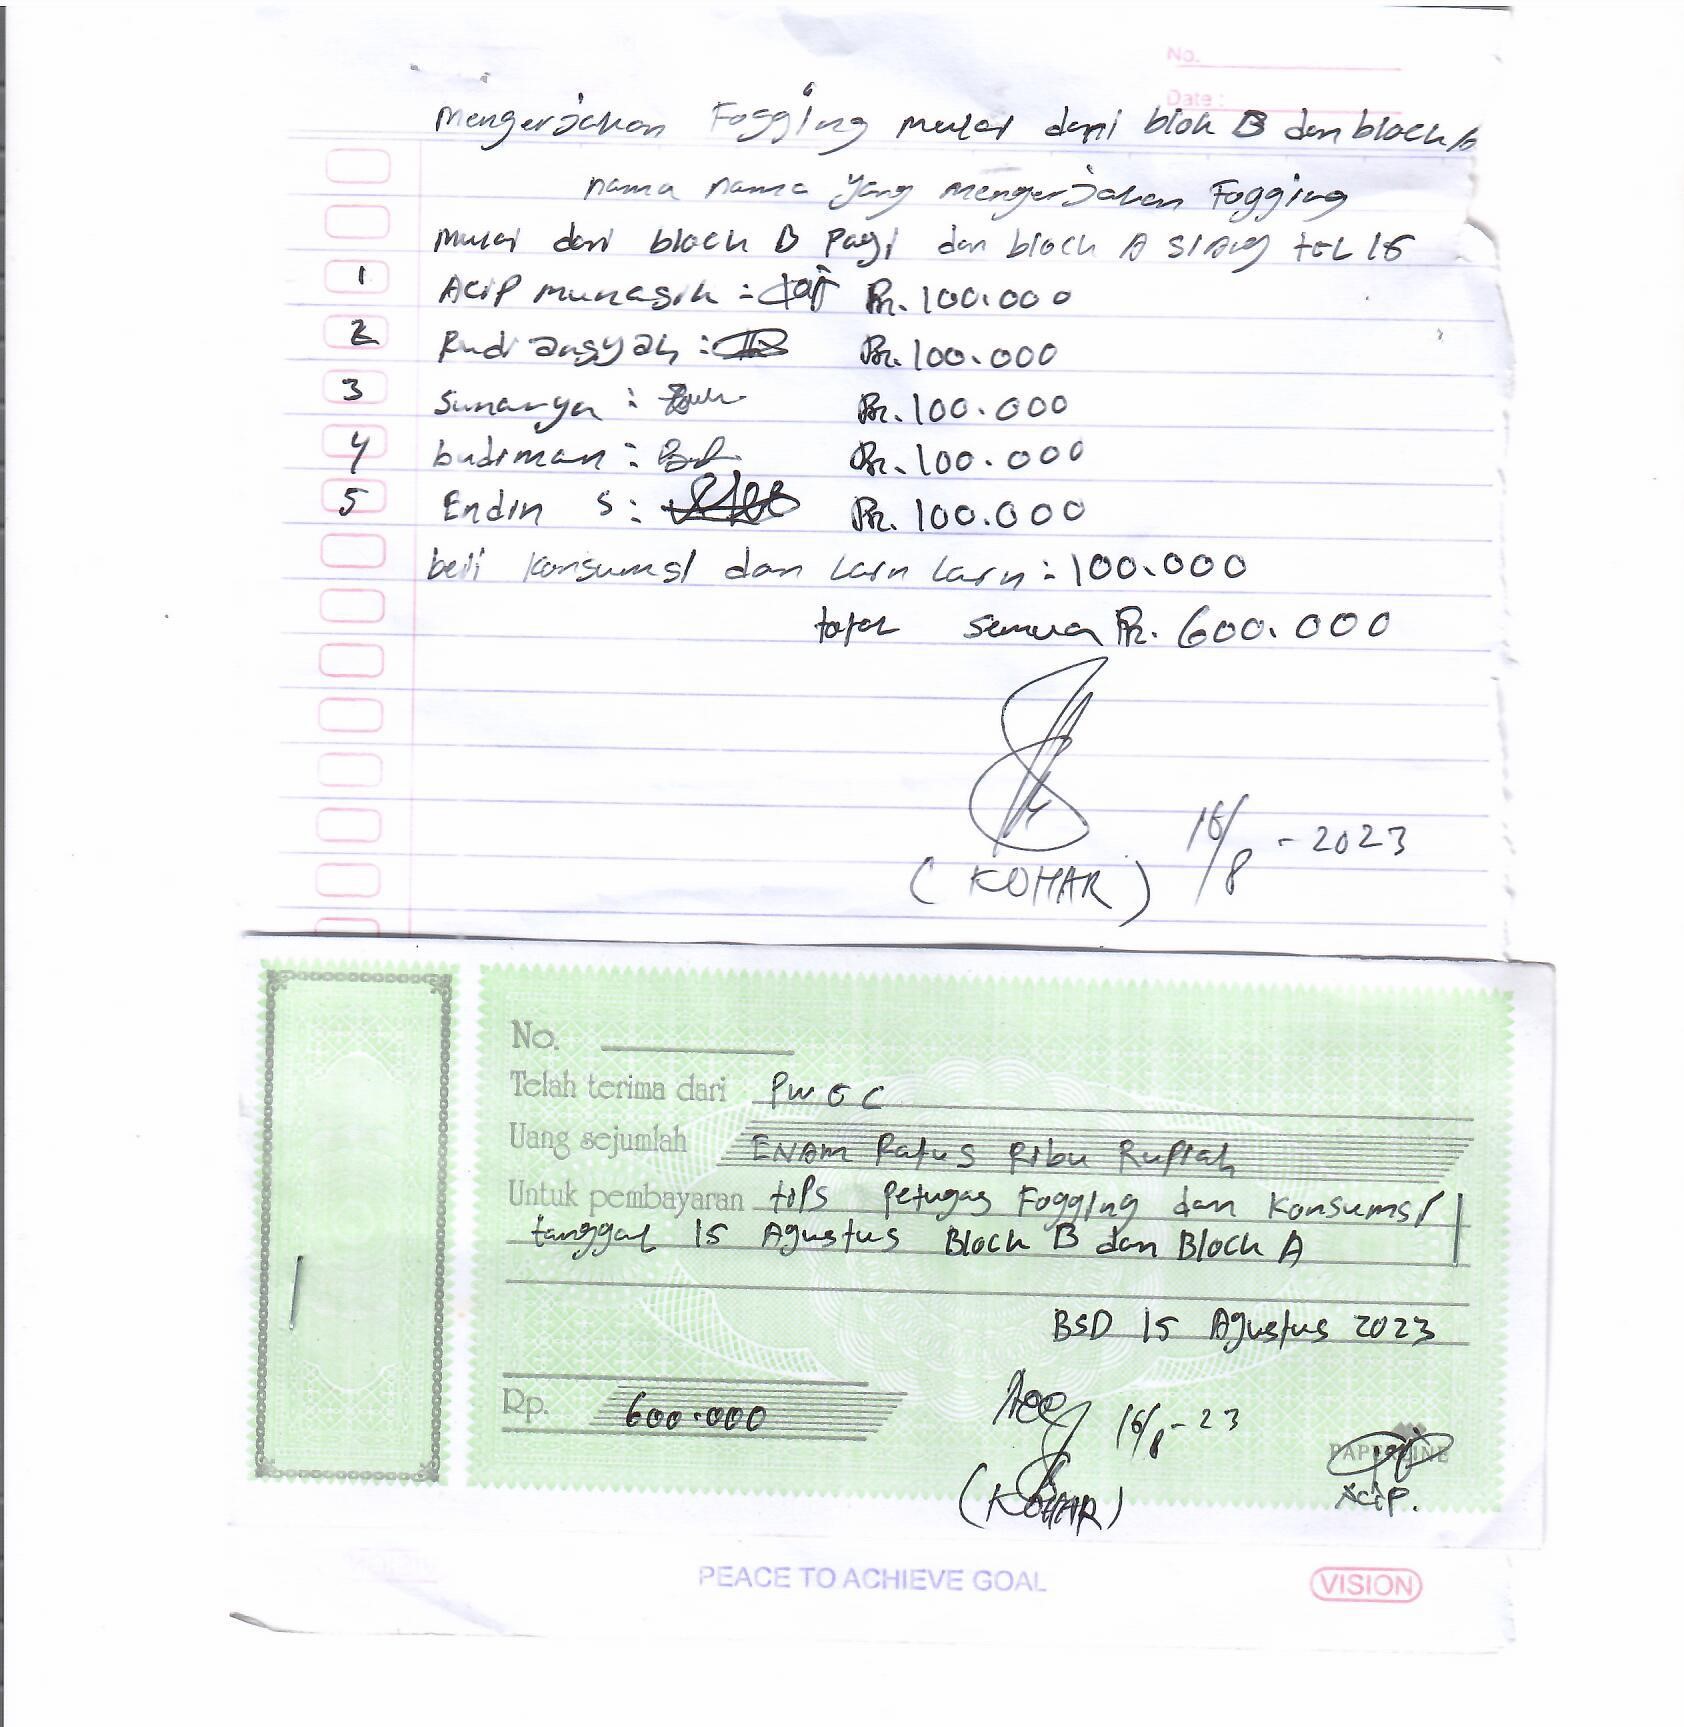 No.
Date:
Mengerjakan Fogging mulai dari blok B dan block
nama nama yang mengerjakan Fogging
mulai dari block B pagi dan block A siang
1 Acip munasik : Rp. 100.000
2 Rudi ansyah : Rp. 100.000
3 Sunarya : Rp. 100.000
4 budiman : Rp. 100.000
5 Endin S : Rp. 100.000
beli konsumsi dan lain lain : 100.000
total semua Rp. 600.000
16/8 - 2023
(KOHAR)
No.
Telah terima dari PWGC
Uang sejumlah ENAM Ratus Ribu Rupiah
Untuk pembayaran tips petugas Fogging dan Konsumsi
tanggal 15 Agustus Block B dan Block A
BSD 15 Agustus 2023
Rp. 600.000
Acc 16/8 - 23
PAPERLINE
(KOHAR)
Acip.
PEACE TO ACHIEVE GOAL
VISION